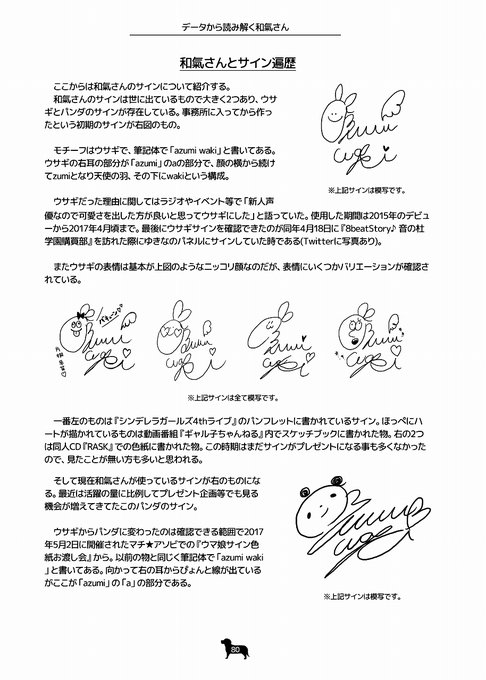 データから読み解く和氣さん
和氣さんとサイン遍歴
ここからは和氣さんのサインについて紹介する。
和氣さんのサインは世に出ているもので大きく2つあり、ウサ
ギとパンダのサインが存在している。事務所に入ってから作っ
たという初期のサインが右図のもの。
モチーフはウサギで、筆記体で「azumi waki」と書いてある。
ウサギの右耳の部分が「azumi」のaの部分で、顔の横から続け
てzumiとなり天使の羽、その下にwakiという構成。
※上記サインは模写です。
ウサギだった理由に関してはラジオやイベント等で「新人声
優なので可愛さを出した方が良いと思ってウサギにした」と語っていた。使用した期間は2015年のデビュ
ーから2017年4月頃まで。最後にウサギサインを確認できたのが同年4月18日に『8beatStory♪ 音の杜
学園購買部』を訪れた際にゆきなのパネルにサインしていた時である(Twitterに写真あり)。
またウサギの表情は基本が上図のようなニッコリ顔なのだが、表情にいくつかバリエーションが確認さ
れている。
※上記サインは全て模写です。
一番左のものは『シンデレラガールズ4thライブ』のパンフレットに書かれているサイン。ほっぺにハ
ートが描かれているものは動画番組『ギャル子ちゃんねる』内でスケッチブックに書かれた物。右の2つ
は同人CD『RASK』での色紙に書かれた物。この時期はまだサインがプレゼントになる事も多くなかった
ので、見たことが無い方も多いと思われる。
そして現在和氣さんが使っているサインが右のものにな
る。最近は活躍の量に比例してプレゼント企画等でも見る
機会が増えてきてたこのパンダのサイン。
ウサギからパンダに変わったのは確認できる範囲で2017
年5月2日に開催されたマチ★アソビでの『ウマ娘サイン色
紙お渡し会』から。以前の物と同じく筆記体で「azumi waki
」と書いてある。向かって右の耳からぴょんと線が出ている
がここが「azumi」の「a」の部分である。
※上記サインは模写です。
80